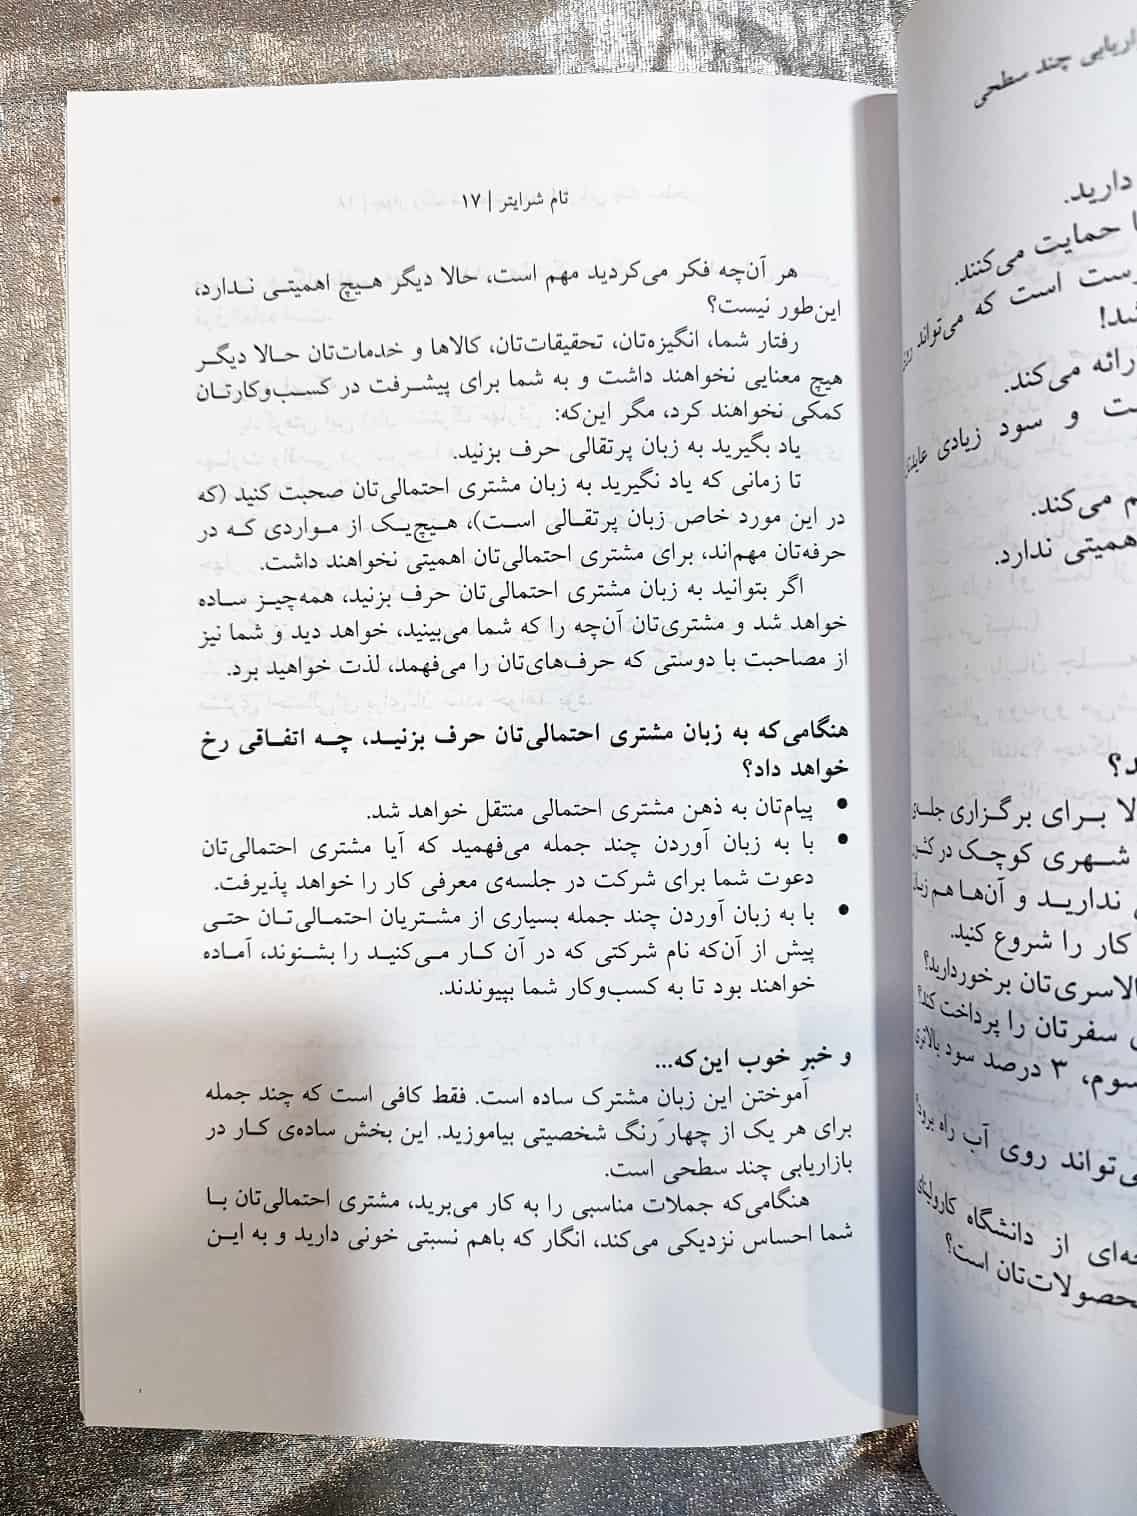 تام شرایتر | ۱۷
هر آن‌چه فکر می‌کردید مهم است، حالا دیگر هیچ اهمیتی ندارد،
این‌طور نیست؟
رفتار شما، انگیزه‌تان، تحقیقات‌تان، کالاها و خدمات‌تان حالا دیگر
هیچ معنایی نخواهند داشت و به شما برای پیشرفت در کسب‌وکارتان
کمکی نخواهند کرد، مگر این‌که:
یاد بگیرید به زبان پرتقالی حرف بزنید.
تا زمانی که یاد نگیرید به زبان مشتری احتمالی‌تان صحبت کنید (که
در این مورد خاص زبان پرتقالی است)، هیچ‌یک از مواردی که در
حرفه‌تان مهم‌اند، برای مشتری احتمالی‌تان اهمیتی نخواهند داشت.
اگر بتوانید به زبان مشتری احتمالی‌تان حرف بزنید، همه‌چیز ساده
خواهد شد و مشتری‌تان آن‌چه را که شما می‌بینید، خواهد دید و شما نیز
از مصاحبت با دوستی که حرف‌های‌تان را می‌فهمد، لذت خواهید برد.
هنگامی‌که به زبان مشتری احتمالی‌تان حرف بزنید، چه اتفاقی رخ
خواهد داد؟
• پیام‌تان به ذهن مشتری احتمالی منتقل خواهد شد.
• با به زبان آوردن چند جمله می‌فهمید که آیا مشتری احتمالی‌تان
دعوت شما برای شرکت در جلسه‌ی معرفی کار را خواهد پذیرفت.
• با به زبان آوردن چند جمله بسیاری از مشتریان احتمالی‌تان حتی
پیش از آن‌که نام شرکتی که در آن کار می‌کنید را بشنوند، آماده
خواهند بود تا به کسب‌وکار شما بپیوندند.
و خبر خوب این‌که...
آموختن این زبانِ مشترک ساده است. فقط کافی است که چند جمله
برای هر یک از چهار رنگ شخصیتی بیاموزید. این بخش ساده‌ی کار در
بازاریابی چند سطحی است.
هنگامی‌که جملات مناسبی را به کار می‌برید، مشتری احتمالی‌تان با
شما احساس نزدیکی می‌کند، انگار که باهم نسبتی خونی دارید و به این
چند سطحی
دارید.
حمایت می‌کنند.
است که می‌تواند
ارائه می‌کند.
و سود زیادی
می‌کند.
اهمیتی ندارد.
برای برگزاری جلسه‌ی
شهری کوچک در
ندارید و آن‌ها هم
کار را شروع کنید.
برخوردارید؟
سفرتان را پرداخت کند؟
سوم، ۳ درصد سود بالاتری
روی آب راه برود؟
از دانشگاه
محصولات‌تان است؟